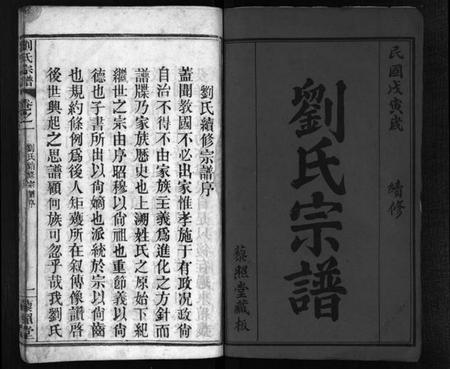 民國戊寅歲
續修
劉氏宗譜
藜照堂藏板
劉氏續修宗譜序
蓋聞教國不必出家惟孝施于有政况政尙
自治不得不由家族主義爲進化之方針而
譜牒乃家族歷史也上溯姓氏之原始下紀
繼世之宗由序昭穆以尙祖也重節義以尙
德也子書所出以尙嫡也派統於宗以尙齒
也規約條例爲後人矩矱所在叙傳像讚啓
後世興起之思譜顧何族可忽乎哉我劉氏
劉氏宗譜
卷之一
劉氏續修宗譜序
一
藜照堂